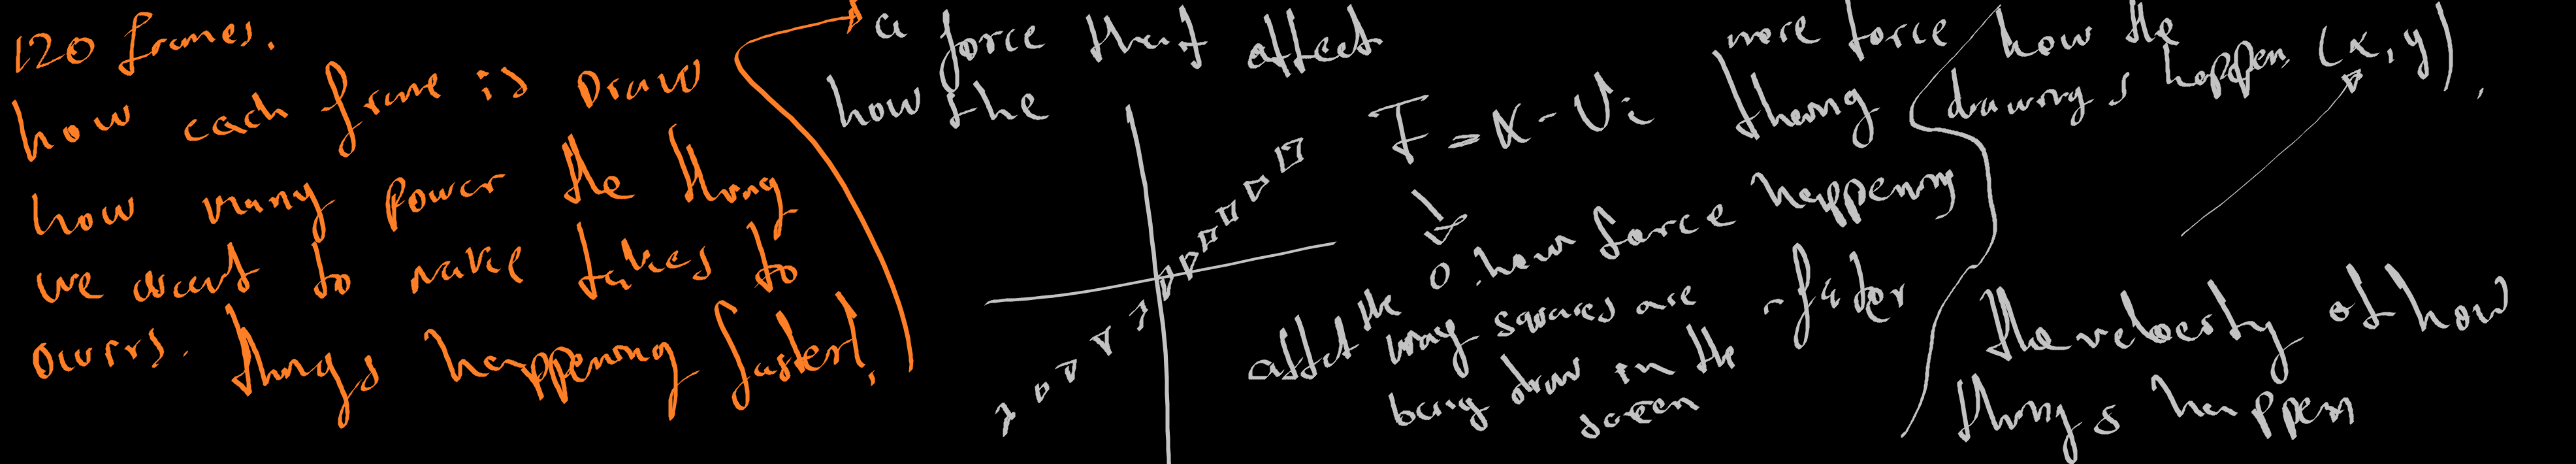 120 frames.
how each frame is Draw
how many power the thing
we want to make takes to
ourrs. things happening faster!
a force that affect
how the
F = x - Vi
0. how force happening
affect the way squares are
being draw in the
screen
more force
thing
- faster
how the
drawings happen (x, y).
the velocity of how
things happen